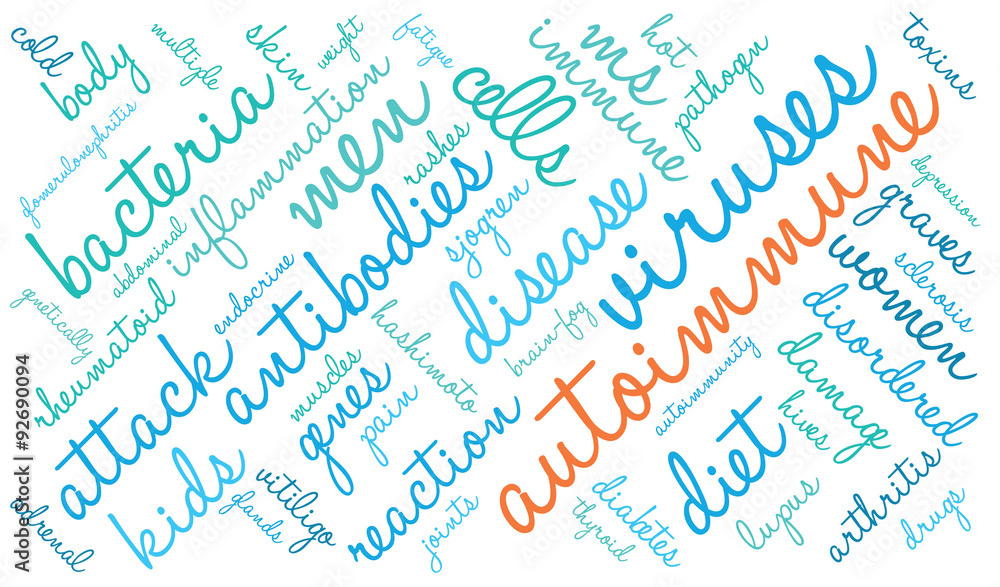 cold
body
multiple
skin
weight
fatigue
ms
hot
immune
toxins
glomerulonephritis
bacteria
inflammation
men
rashes
cells
pathogen
viruses
autoimmune
depression
graves
abdominal
genetically
rheumatoid
endocrine
antibodies
sjogren
disease
brain-fog
women
sclerosis
disordered
attack
muscles
hashimoto
genes
pain
autoimmunity
damage
hives
diet
adrenal
kids
vitiligo
glands
reaction
joints
diabetes
thyroid
lupus
arthritis
drugs
Adobe Stock | #92690094
Adobe Stock